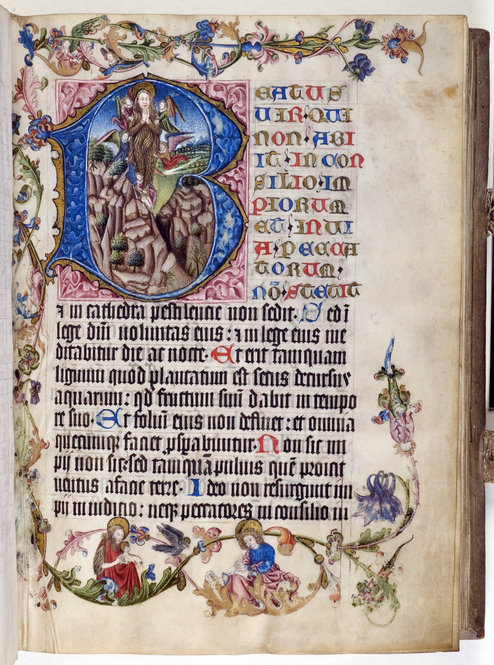 BEATUS
UIR·QUI
NON·ABI
IT·IN CON
SILIO·IM
PIORUM
ET·IN UI
A·PECCA
TORUM·
nō·STETIT
⁊ in cathedra pestilencie non sedit. Sed ī
lege dñi uoluntas eius: ⁊ in lege eius me
ditabitur die ac nocte. Et erit tamquam
lignum quod plantatum est secus decursus
aquarum: qd fructum suū dabit in tempo
re suo. Et folium eius non defluet: et omnia
quecumque faciet prosperabuntur. Non sic im
pij non sic: sed tamquā puluis quē proicit
uentus a facie terre. Ideo non resurgunt im
pij in iuditio: neque peccatores in consilio iu